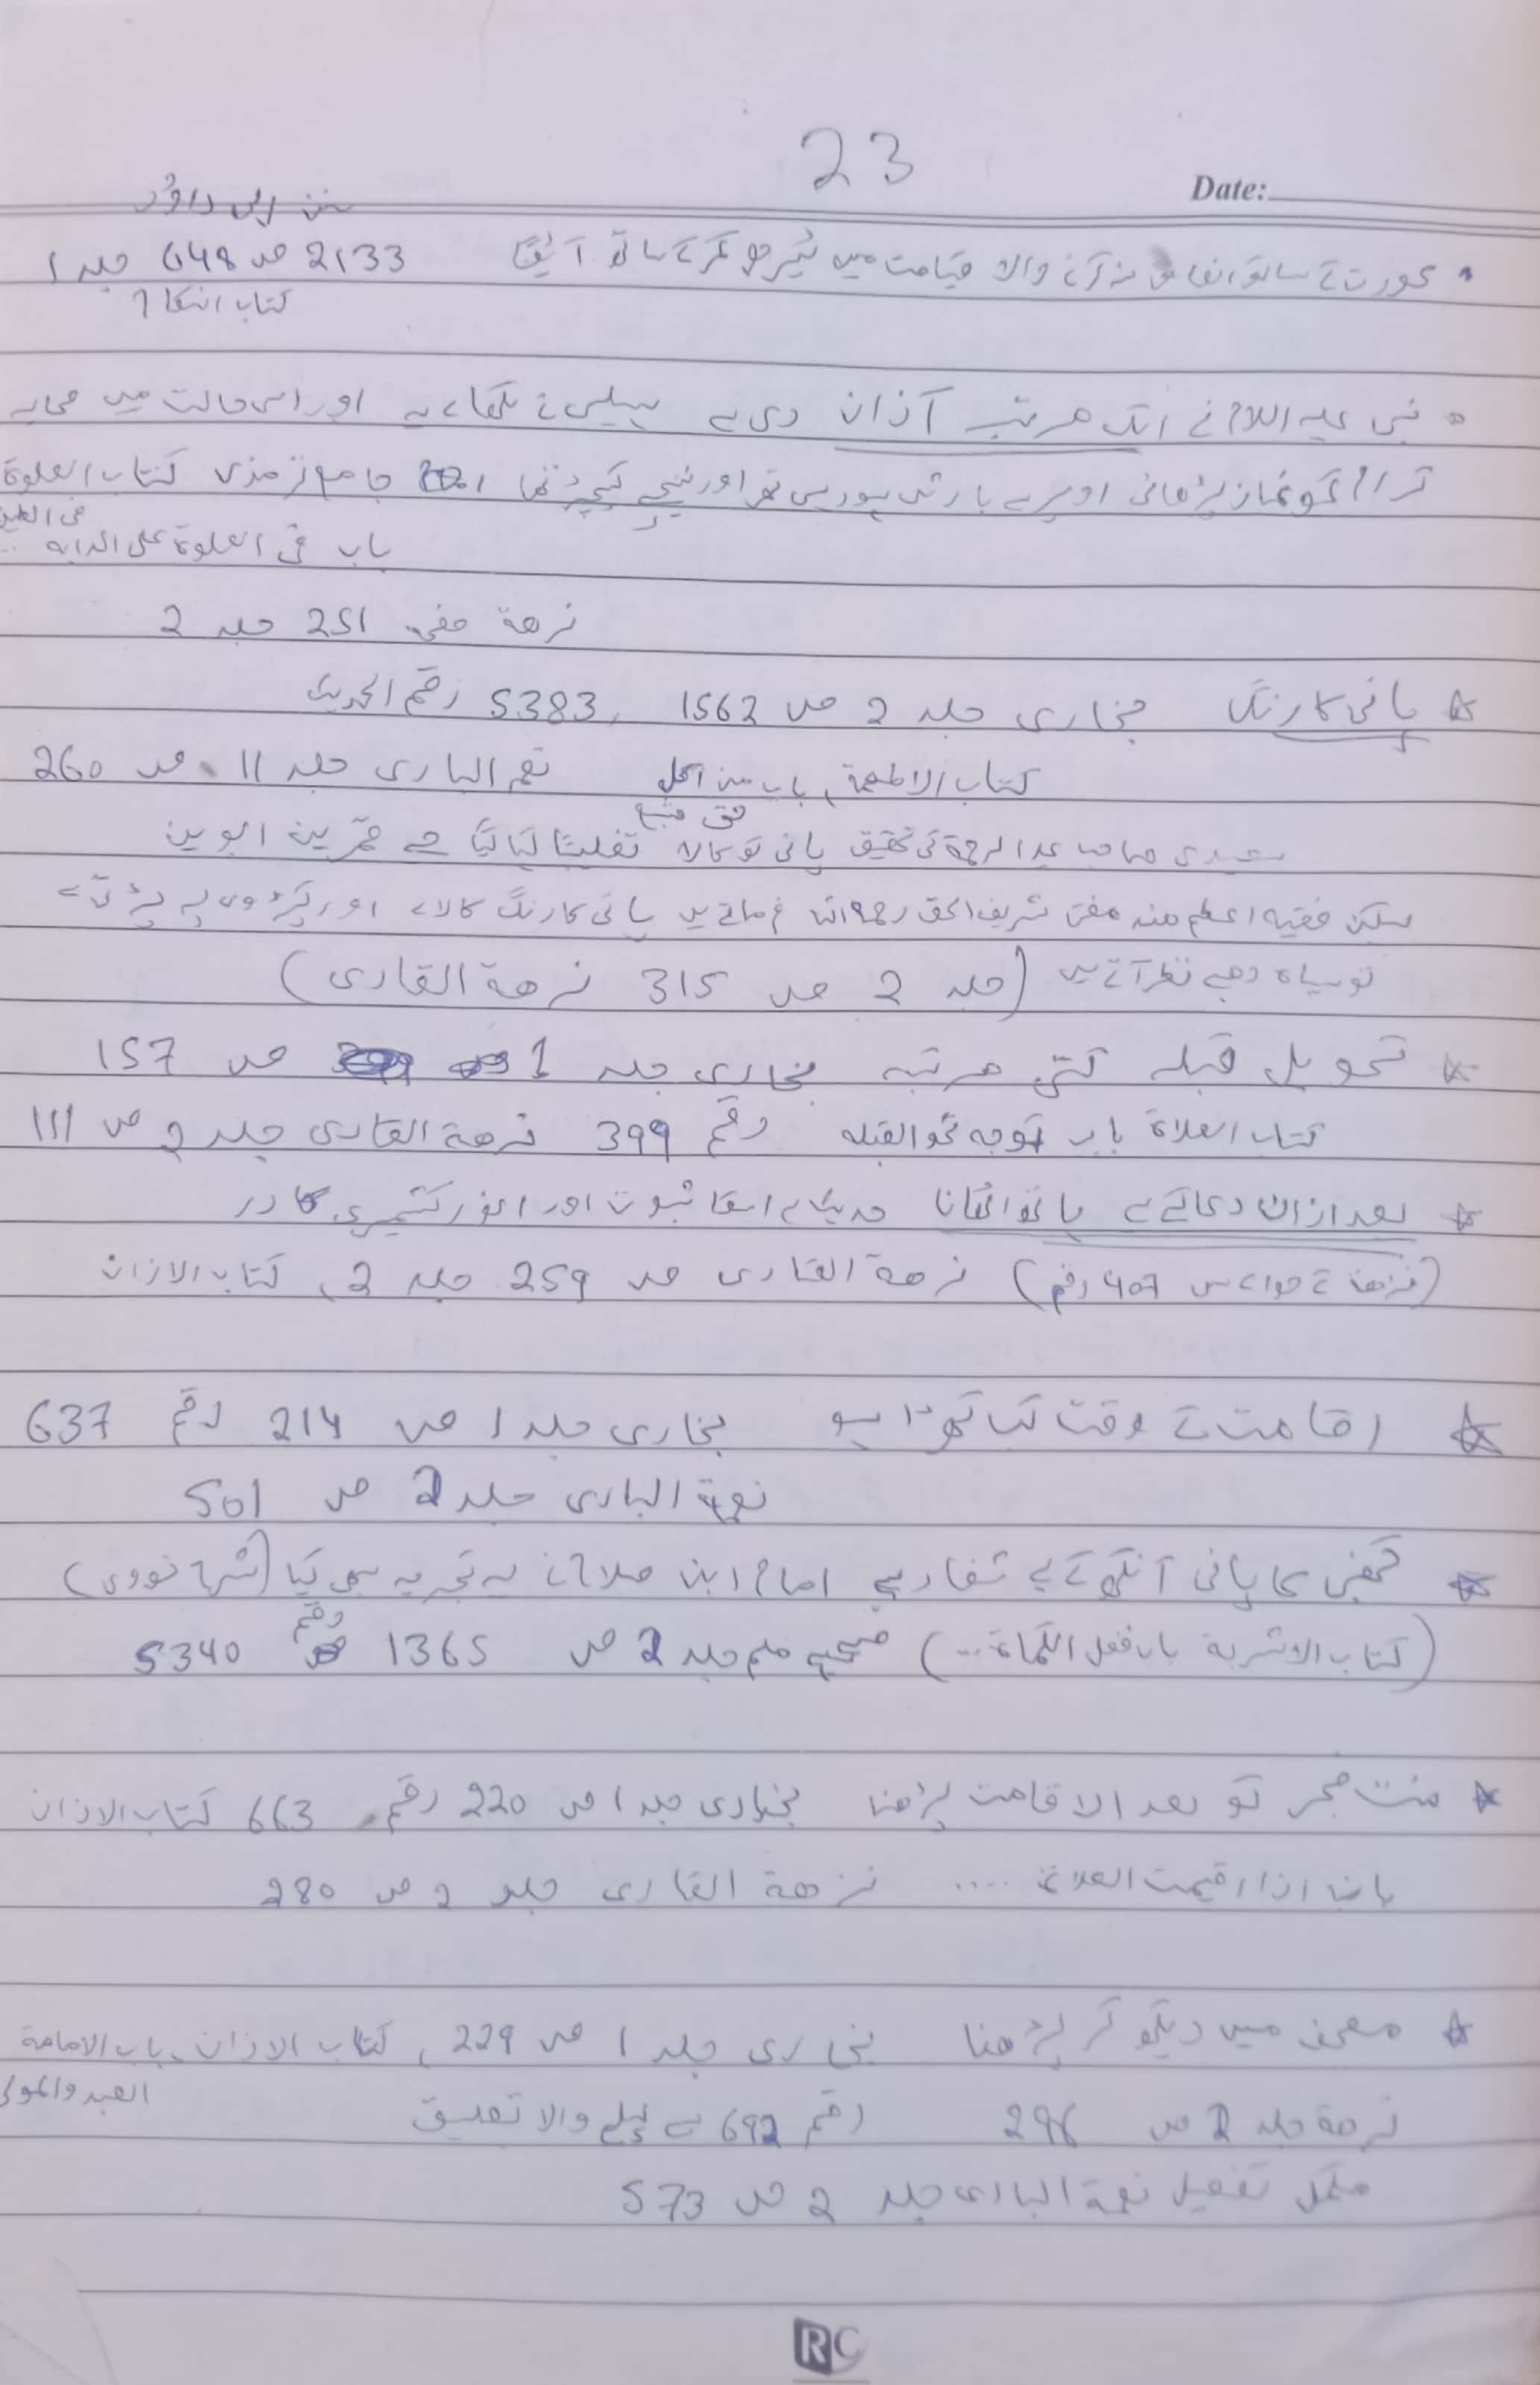 23
Date:
سنن ابی داؤد
• عورت کے ساتھ انصاف نہ کرنے والا قیامت میں ٹیڑھی کمر کے ساتھ آئیگا 2133 ص 648 جلد 1
کتاب النکاح
• نبی علیہ السلام نے ایک مرتبہ آذان دی ہے سہیلی نے لکھا ہے اور اس حالت میں صحابہ
کرام کو نماز پڑھائی اوپر سے بارش ہو رہیں تھی اور نیچے کیچڑ تھا جامع ترمذی کتاب الصلوۃ
باب فی الصلوۃ علی الدابہ فی الطین ..
نزھۃ صفحہ 251 جلد 2
☆ پانی کا رنگ بخاری جلد 2 ص 1562 , 5383 رقم الحدیث
کتاب الاطعمۃ، باب من اکل نعم الباری جلد 11 ص 260
حتی شبع
سعیدی صاحب علیہ الرحمۃ کی تحقیق پانی کو کالا تغلیبًا کہا گیا ہے قمرین ابوین
لیکن فقیہ اعظم ہند مفتی شریف الحق رحمہ اللہ فرماتے ہیں پانی کا رنگ کالا ہے اور کپڑوں پہ پڑتا ہے
تو سیاہ دھبے نظر آتے ہیں (جلد 2 ص 315 نزھۃ القاری)
☆ تحویل قبلہ کتنی مرتبہ بخاری جلد 1 ص 157
کتاب الصلاۃ باب توجہ نحو القبلہ رقم 399 نزھۃ القاری جلد 2 ص 111
☆ بعد اذان دعا کے لیے ہاتھ اٹھانا حدیث سے اسکا ثبوت اور انور کشمیری کا رد
(نزھۃ کے حوالے سے 407 رقم) نزھۃ القاری ص 259 جلد 2، کتاب الاذان
☆ اقامت کے وقت کب کھڑا ہو بخاری جلد 1 ص 214 رقم 637
نعمۃ الباری جلد 2 ص 501
☆ کھمبی کا پانی آنکھ کے لیے شفا ہے امام ابن صلاح نے یہ تجربہ بھی کیا (شرح نووی)
(کتاب الاشربۃ باب فضل الکماۃ...) صحیح مسلم جلد 2 ص 1365 رقم 5340
☆ سنت فجر کو بعد الاقامت پڑھنا بخاری جلد 1 ص 220 رقم 663 کتاب الاذان
باب اذا اقیمت الصلاۃ .... نزھۃ القاری جلد 2 ص 280
☆ مصحف میں دیکھ کر پڑھنا بخاری جلد 1 ص 229، کتاب الاذان، باب الامامۃ
العبد والمولی
نزھۃ جلد 2 ص 296 رقم 692 سے پہلے والا تعلیق
مکمل تفصیل نعمۃ الباری جلد 2 ص 573
RC